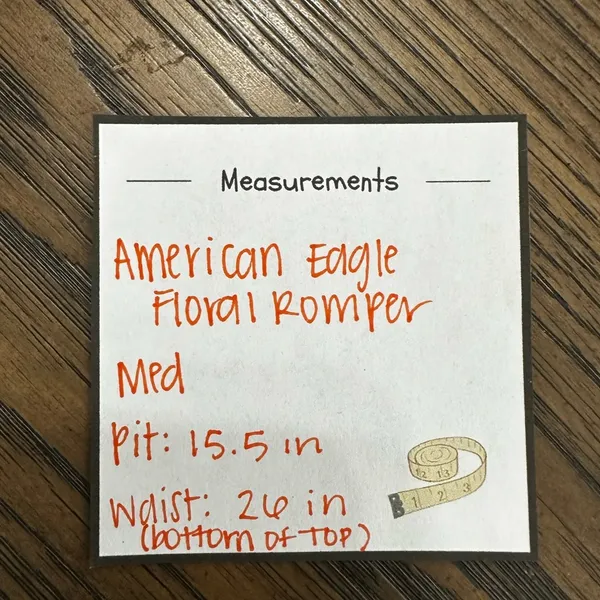 Measurements
American Eagle
Floral Romper
Med
Pit: 15.5 in
Waist: 26 in
(bottom of top)
12 13
1 2 3